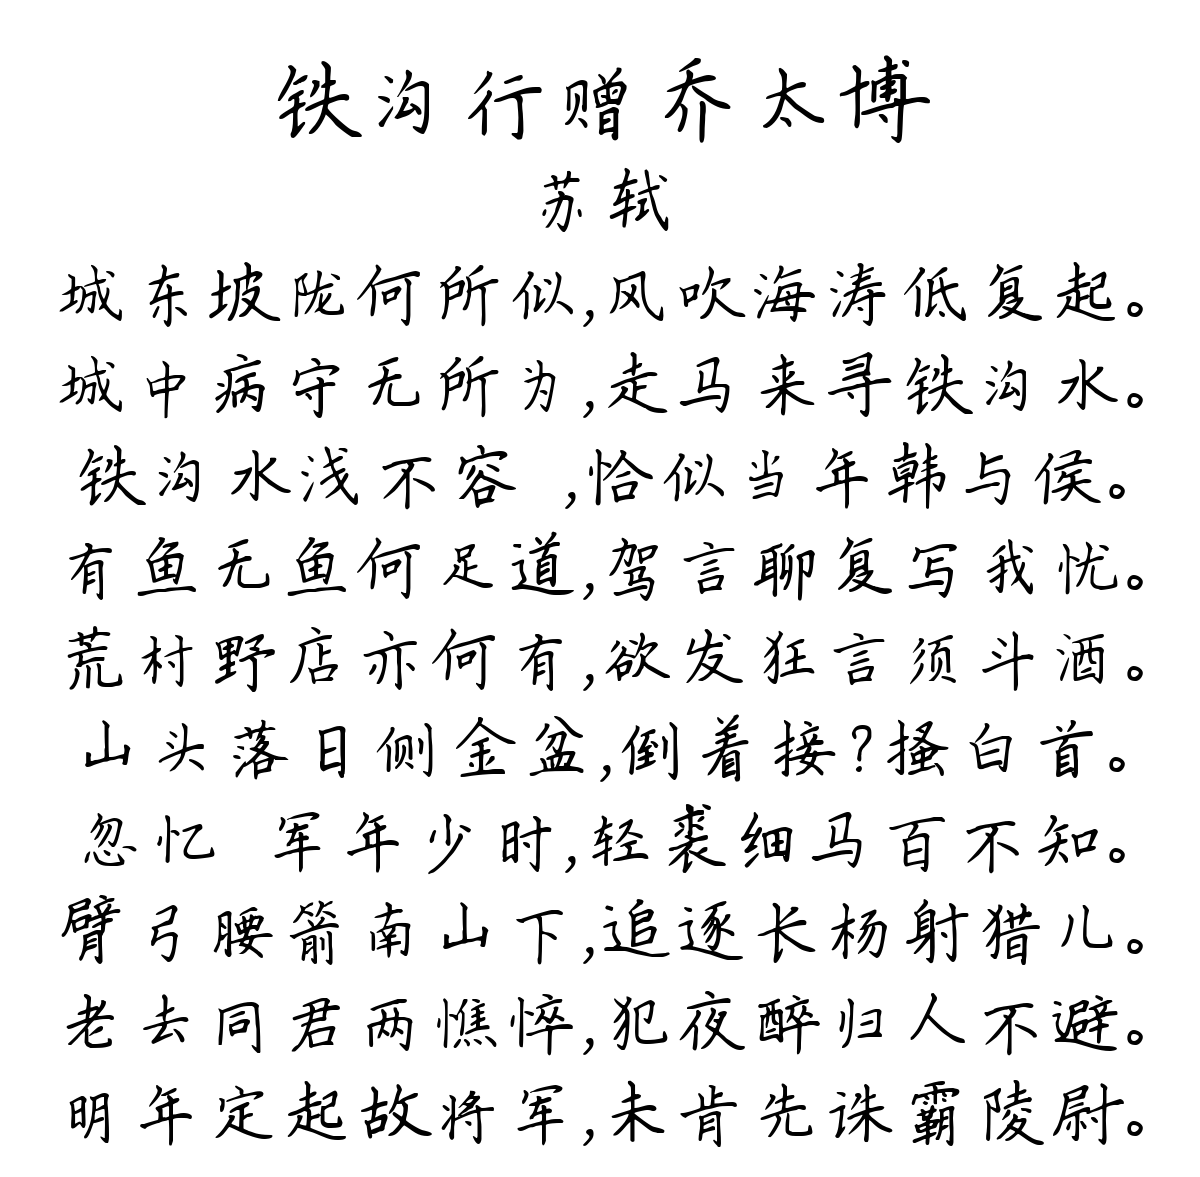 铁沟行赠乔太博
苏轼
城东坡陇何所似,风吹海涛低复起。
城中病守无所为,走马来寻铁沟水。
铁沟水浅不容 ,恰似当年韩与侯。
有鱼无鱼何足道,驾言聊复写我忧。
荒村野店亦何有,欲发狂言须斗酒。
山头落日侧金盆,倒着接?搔白首。
忽忆 军年少时,轻裘细马百不知。
臂弓腰箭南山下,追逐长杨射猎儿。
老去同君两憔悴,犯夜醉归人不避。
明年定起故将军,未肯先诛霸陵尉。